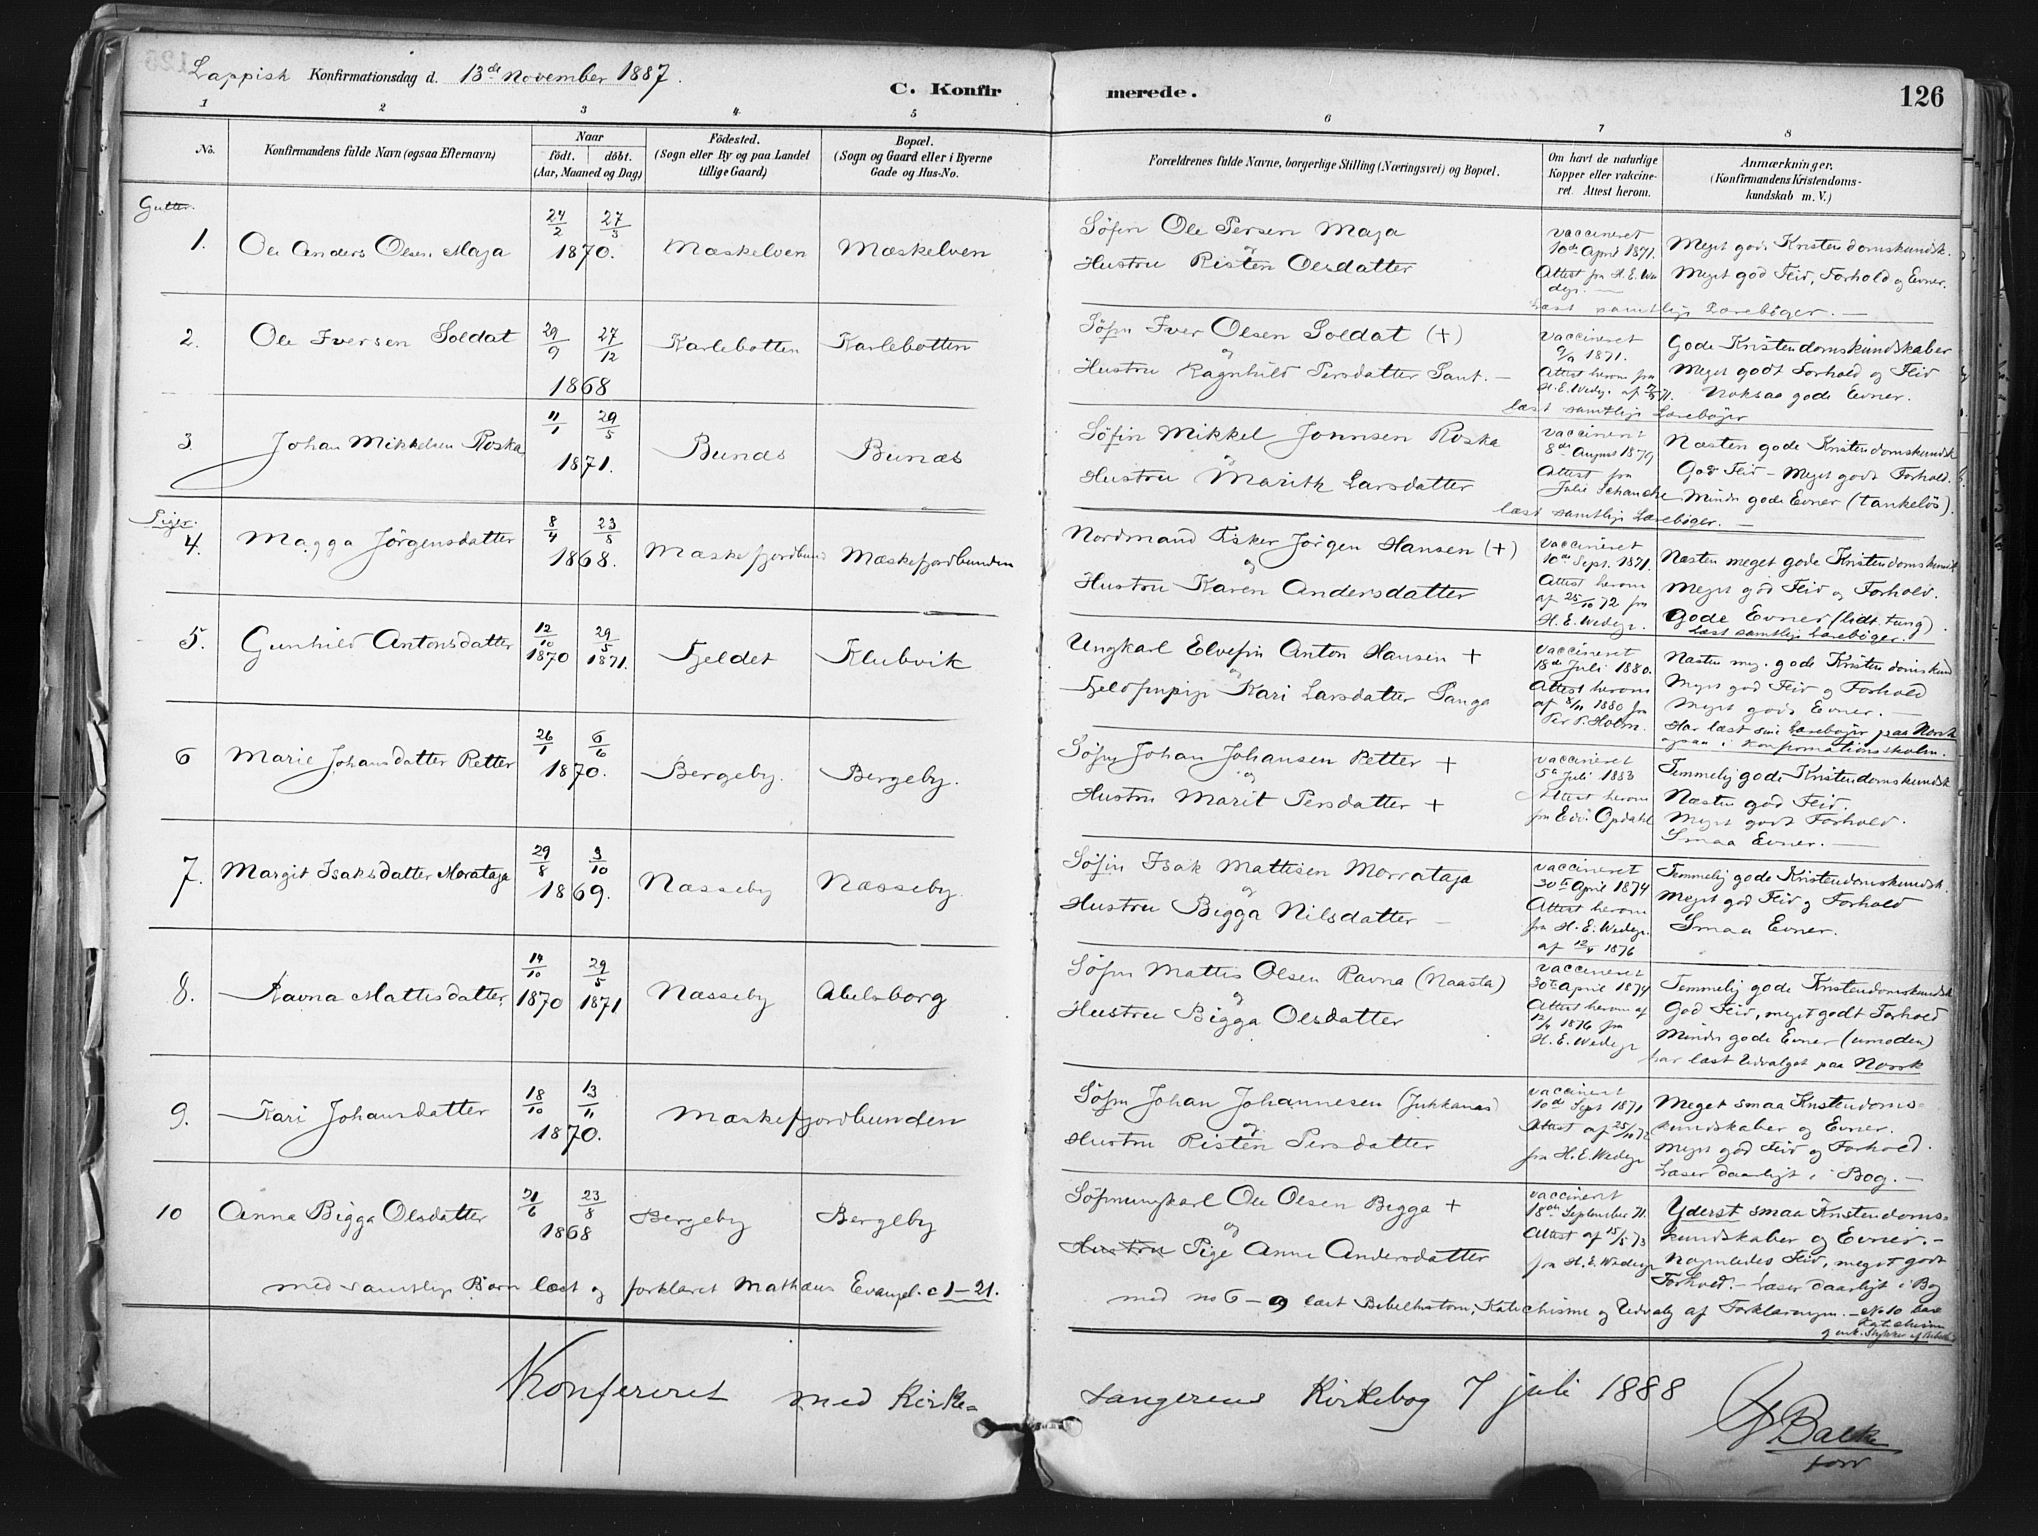 Lappisk Konfirmationsdag d. 13de November 1887.
C. Konfirmerede.
126
1 2 3 4 5 6 7 8
No.
Konfirmandens fulde Navn (ogsaa Efternavn)
Naar
födt. döbt.
(Aar, Maaned og Dag)
Födested.
(Sogn eller By og paa Landet
tillige Gaard)
Bopæl.
(Sogn og Gaard eller i Byerne
Gade og Hus-No.
Forældrenes fulde Navne, borgerlige Stilling (Næringsvei) og Bopæl.
Om havt de naturlige
Kopper eller vakcine-
ret. Attest herom.
Anmærkninger.
(Konfirmandens Kristendoms-
kundskab m. V.)
Gutter.
1. Ole Anders Olsen Maja 24/2 27/3 1870. Mæskelven Mæskelven
Söfin Ole Persen Maja
og
Hustru Risten Olsdatter
vaccineret
10de April 1871.
Attest fra H. E. We
deg.
Meget gode Kristendomskundsk.
Meget god Flid, Forhold og Evner.
Læst samtlige Lærebøger. —
2. Ole Iversen Soldat 29/9 27/12 1868 Karlebotten Karlebotten
Söfin Iver Olsen Soldat (+)
og
Hustru Ragnhild Persdatter Sant. —
vaccineret
1871.
Attest herom fra
H. E. Wedege af
Gode Kristendomskundskaber
Meget godt Forhold og Flid
Noksaa gode Evner.
læst samtlige Lærebøger
3 Johan Mikkelsen Roska 11/1 29/5 1871. Bunæs Bunæs
Söfin Mikkel Jonnsen Roska
og
Hustru Marith Larsdatter
vaccineret
8de August 1879
Attest fra
Julie Schancke
Næsten gode Kristendomskundsk
God Flid — Meget godt Forhold.
Mindre gode Evner (tankelös).
læst samtlige Lærebøger. —
Piger.
4. Magga Jörgensdatter 8/4 23/8 1868. Mæskefjordbund Mæskefjordbunden
Nordmand Fisker Jörgen Hansen (+)
og
Hustru Karen Andersdatter
vaccineret
10de Sept. 1871.
Attest herom
af 25/10 72 fra
H. E. Wedege.
Næsten meget gode Kristendomskundsk
Meget god Flid og Forhold.
Gode Evner (lidt tung).
Læst samtlige Lærebøger.
5. Gunhild Antonsdatter 12/10 1870 29/5 1871. Fjeldet Klubvik
Ungkarl Elvefin Anton Hansen +
og
Fjeldfinpige Kari Larsdatter Panga
vaccineret
18de Juli 1880.
Attest herom
af 8/11 1880 fra
Per P. Holm.
Næsten meg. gode Kristendomskund
Meget god Flid og Forhold
Meget gode Evner. —
Har læst sine Lærebøger paa Norsk
ogsaa i Konfirmationsskolen.
6 Marie Johansdatter Retter 26/1 6/6 1870. Bergeby. Bergeby.
Söfin Johan Johansen Retter +
og
Hustru Marit Persdatter +
vaccineret
5te Juli 1883
Attest herom
fra Edv. Opdahl
Temmelig gode Kristendomskundsk
Næsten god Flid.
Meget godt Forhold.
Smaa Evner. —
7. Margit Isaksdatter Morataja 29/8 3/10 1869. Næsseby Næsseby.
Söfin Isak Mattisen Morrataja
og
Hustru Bigga Nilsdatter —
vaccineret
30te April 1874
Attest herom
fra H. E. Wedege.
af 12/4 1876
Temmelig gode Kristendomskundsk.
Meget god Flid og Forhold
Smaa Evner.
8. Ravna Mattisdatter 14/10 1870 29/5 1871 Næsseby Abelsborg
Söfin Mattis Olsen Ravna (Naasta)
og
Hustru Bigga Olsdatter
vaccineret
30te April 1874
Attest herom af
12/4 1876 fra
H. E. Wedege
Temmelig gode Kristendomskundsk
God Flid, meget godt Forhold
Mindre gode Evner (umoden)
har læst Udvalget paa Norsk
9. Kari Johansdatter 18/10 13/11 1870. Mæskefjordbunden
Söfin Johan Johannesen (Jukkanas)
og
Hustru Risten Persdatter
vaccineret
10de Sept 1871
Attest af 25/10 72
fra H. E. Wedege
Meget smaa Kristendoms-
kundskaber og Evner.
Meget god Flid og Forhold.
Læser daarligt i Bog. —
10 Anna Bigga Olsdatter 21/6 23/8 1868 Bergeby Bergeby
Söfinungkarl Ole Olsen Bigga +
og
Hustru Pige Anne Andersdatter
vaccineret
18de September 71.
Attest af 15/5 73
fra H. E. Wedege
Yderst smaa Kristendoms-
kundskaber og Evner. —
Nogenledes Flid, meget godt
Forhold. — Læser daarligt i Bog
med samtlige Börn læst og forklaret Mathæus Evangel. c 1—21.
med no 6—9 læst Bibelhistorie, Katechisme og Udvalg af Forklaringen. — No 10 bare
Katechisme
og enk. Stykker af Bibelh.
Konfereret med Kirkesangerens Kirkebog 7 juli 1888
Balke